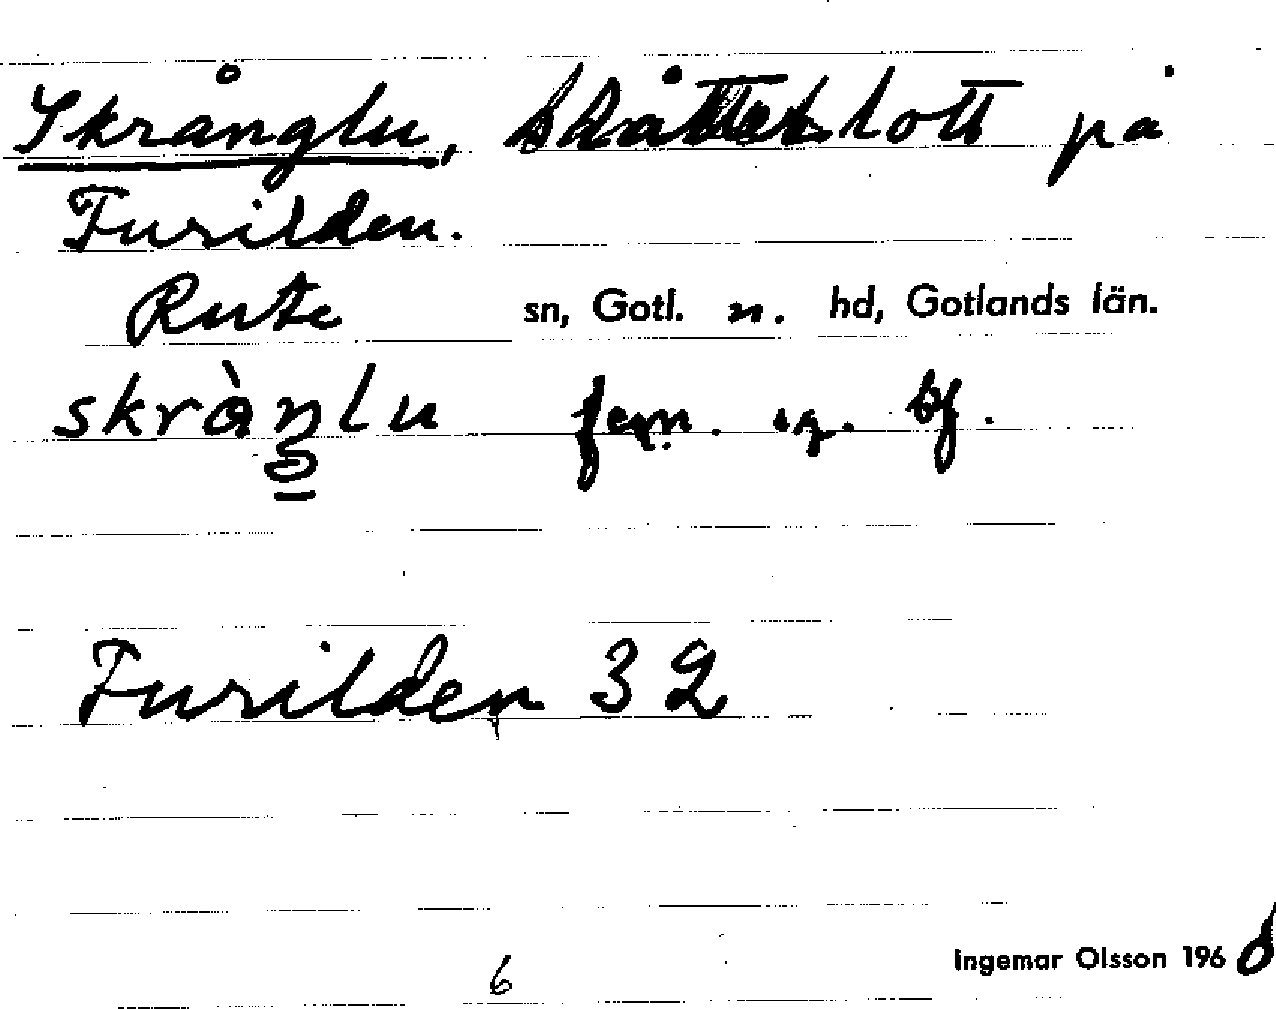 Skrånglu, slåtteslott på
Furilden.
Rute sn, Gotl. n. hd, Gotlands län.
skrànlu fem. sg. bf.
Furilden 32
6
Ingemar Olsson 1966